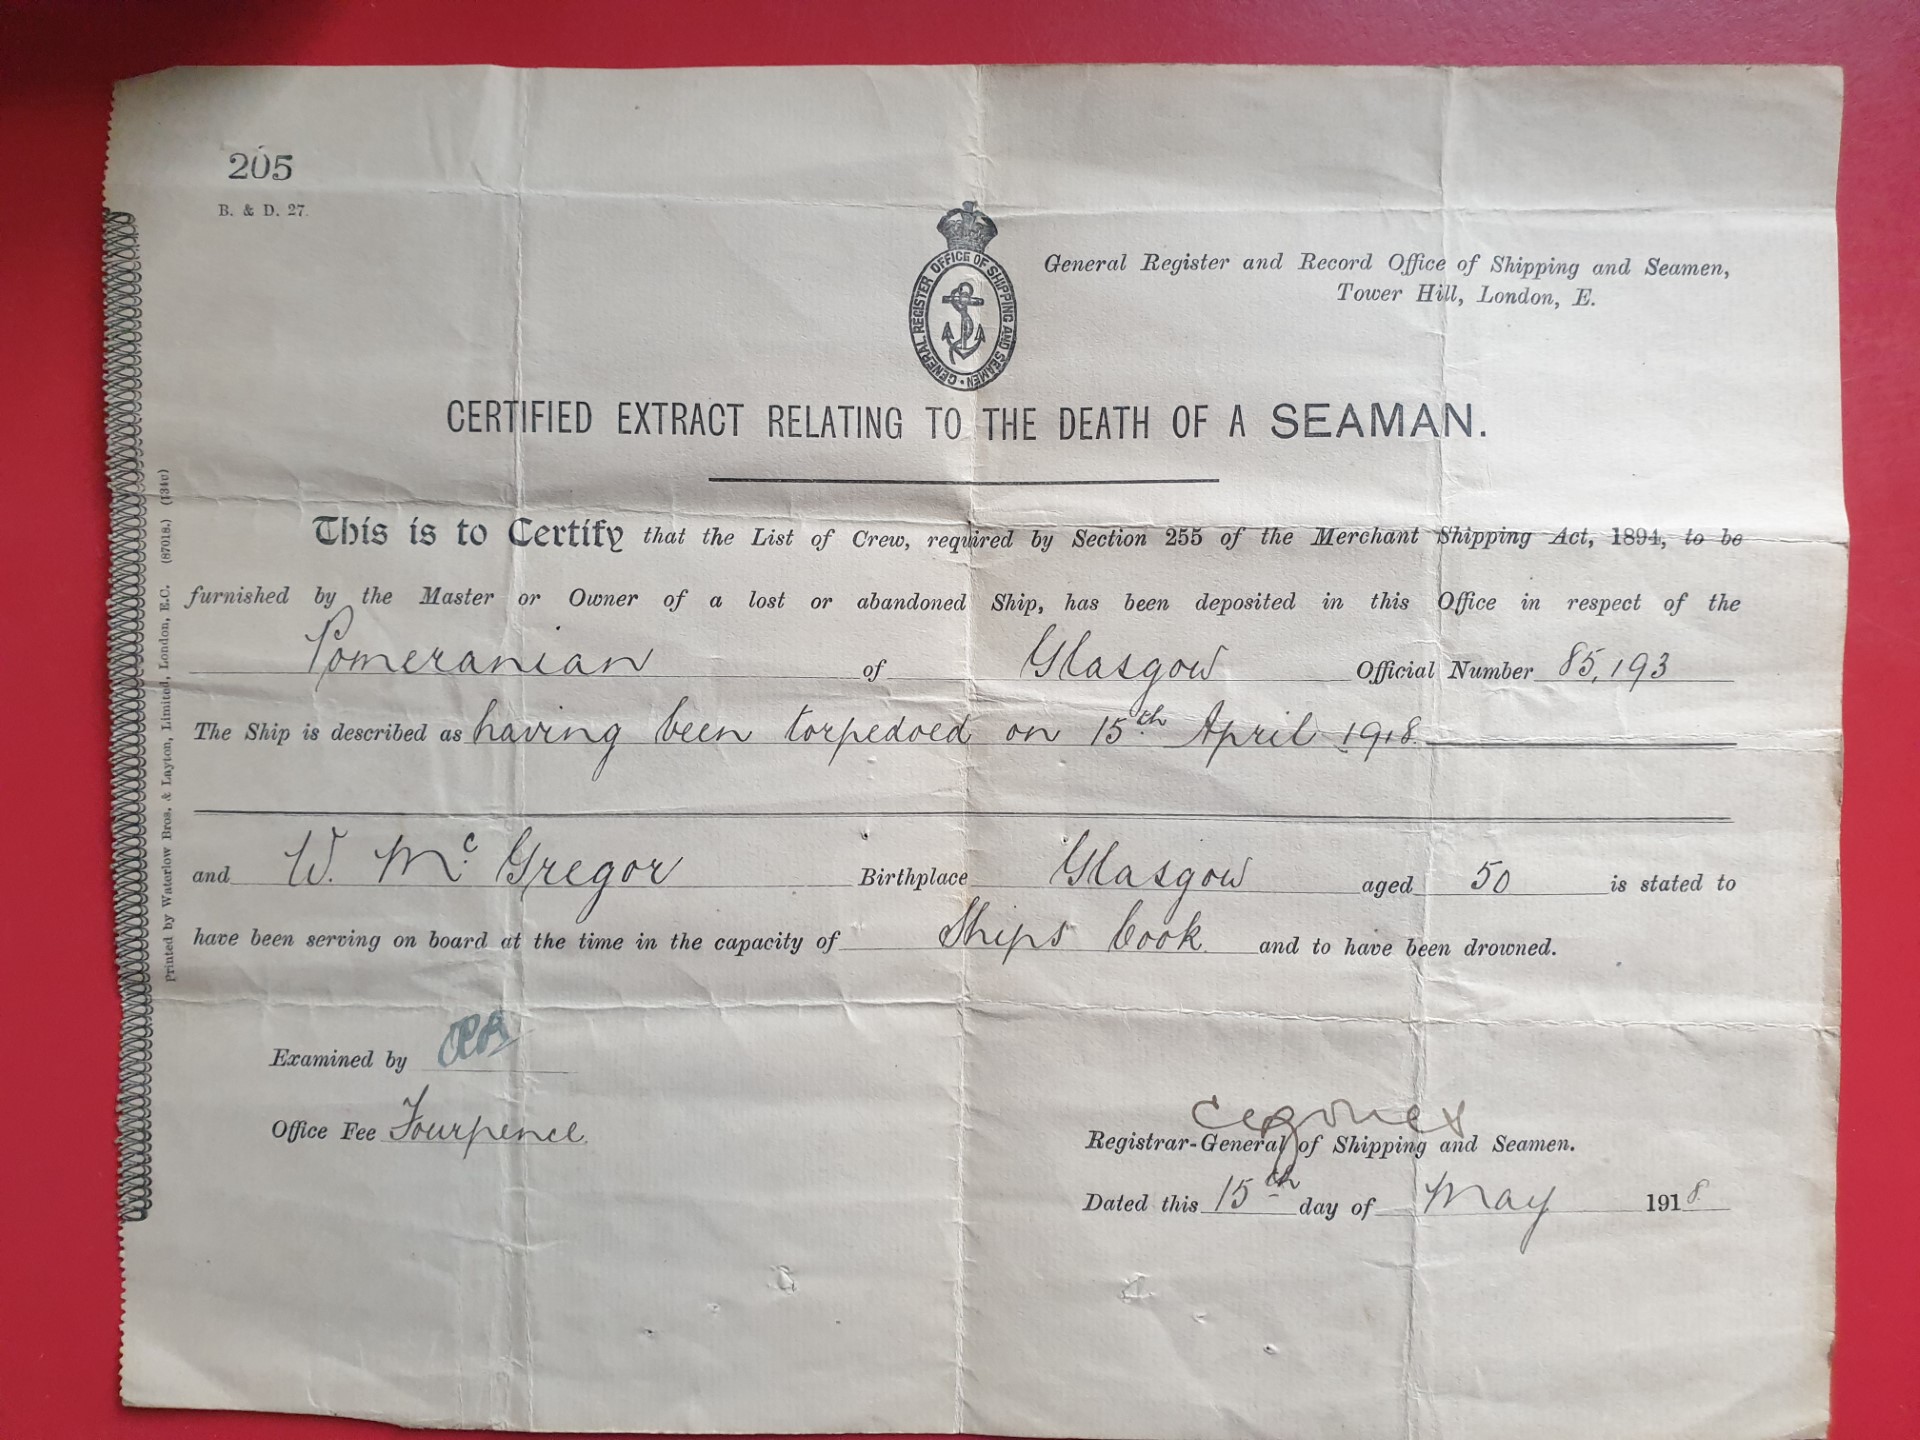 205
B. & D. 27.
GENERAL REGISTER OFFICE OF SHIPPING AND SEAMEN
General Register and Record Office of Shipping and Seamen,
Tower Hill, London, E.
CERTIFIED EXTRACT RELATING TO THE DEATH OF A SEAMAN.
This is to Certify that the List of Crew, required by Section 255 of the Merchant Shipping Act, 1894, to be
furnished by the Master or Owner of a lost or abandoned Ship, has been deposited in this Office in respect of the
Pomeranian of Glasgow Official Number 85,193
The Ship is described as having been torpedoed on 15th April 1918.
and W. Mc Gregor Birthplace Glasgow aged 50 is stated to
have been serving on board at the time in the capacity of Ships Cook and to have been drowned.
Examined by
Office Fee Fourpence.
Registrar-General of Shipping and Seamen.
Dated this 15th day of May 1918.
Printed by Waterlow Bros. & Layton, Limited, London, E.C. (87018.)